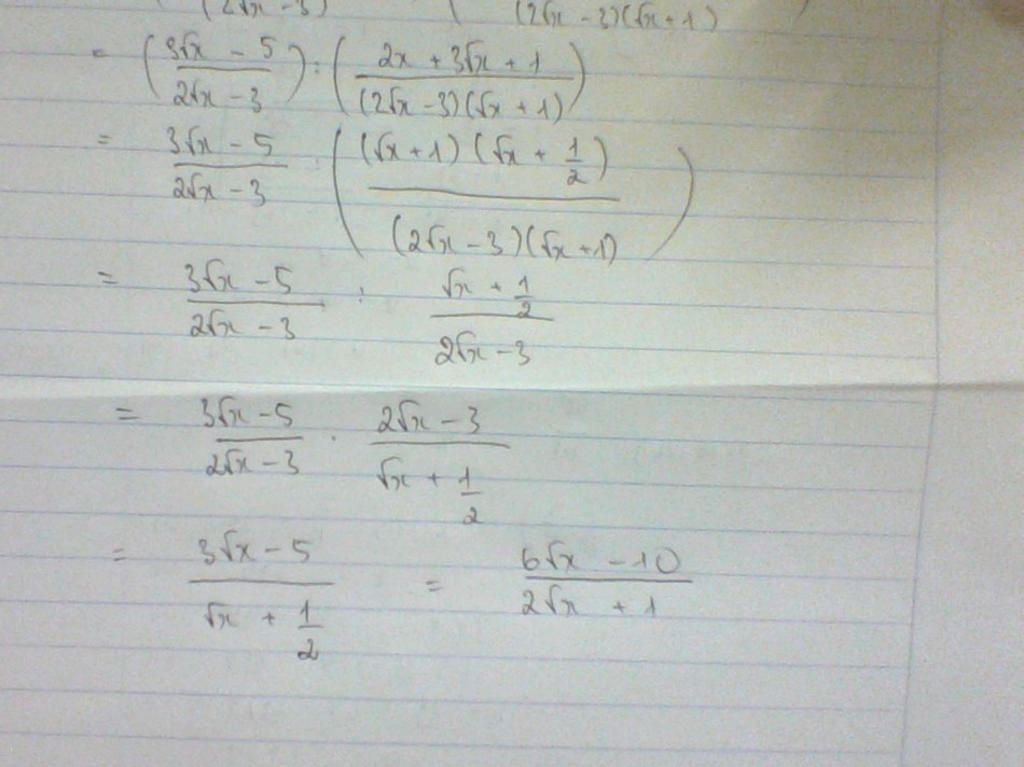 (2√x - 3) (2√x - 3)(√x + 1)
= ((3√x - 5)/(2√x - 3)) : ((2x + 3√x + 1)/((2√x - 3)(√x + 1)))
= (3√x - 5)/(2√x - 3) : (((√x + 1)(√x + 1/2))/((2√x - 3)(√x + 1)))
= (3√x - 5)/(2√x - 3) : (√x + 1/2)/(2√x - 3)
= (3√x - 5)/(2√x - 3) . (2√x - 3)/(√x + 1/2)
= (3√x - 5)/(√x + 1/2) = (6√x - 10)/(2√x + 1)